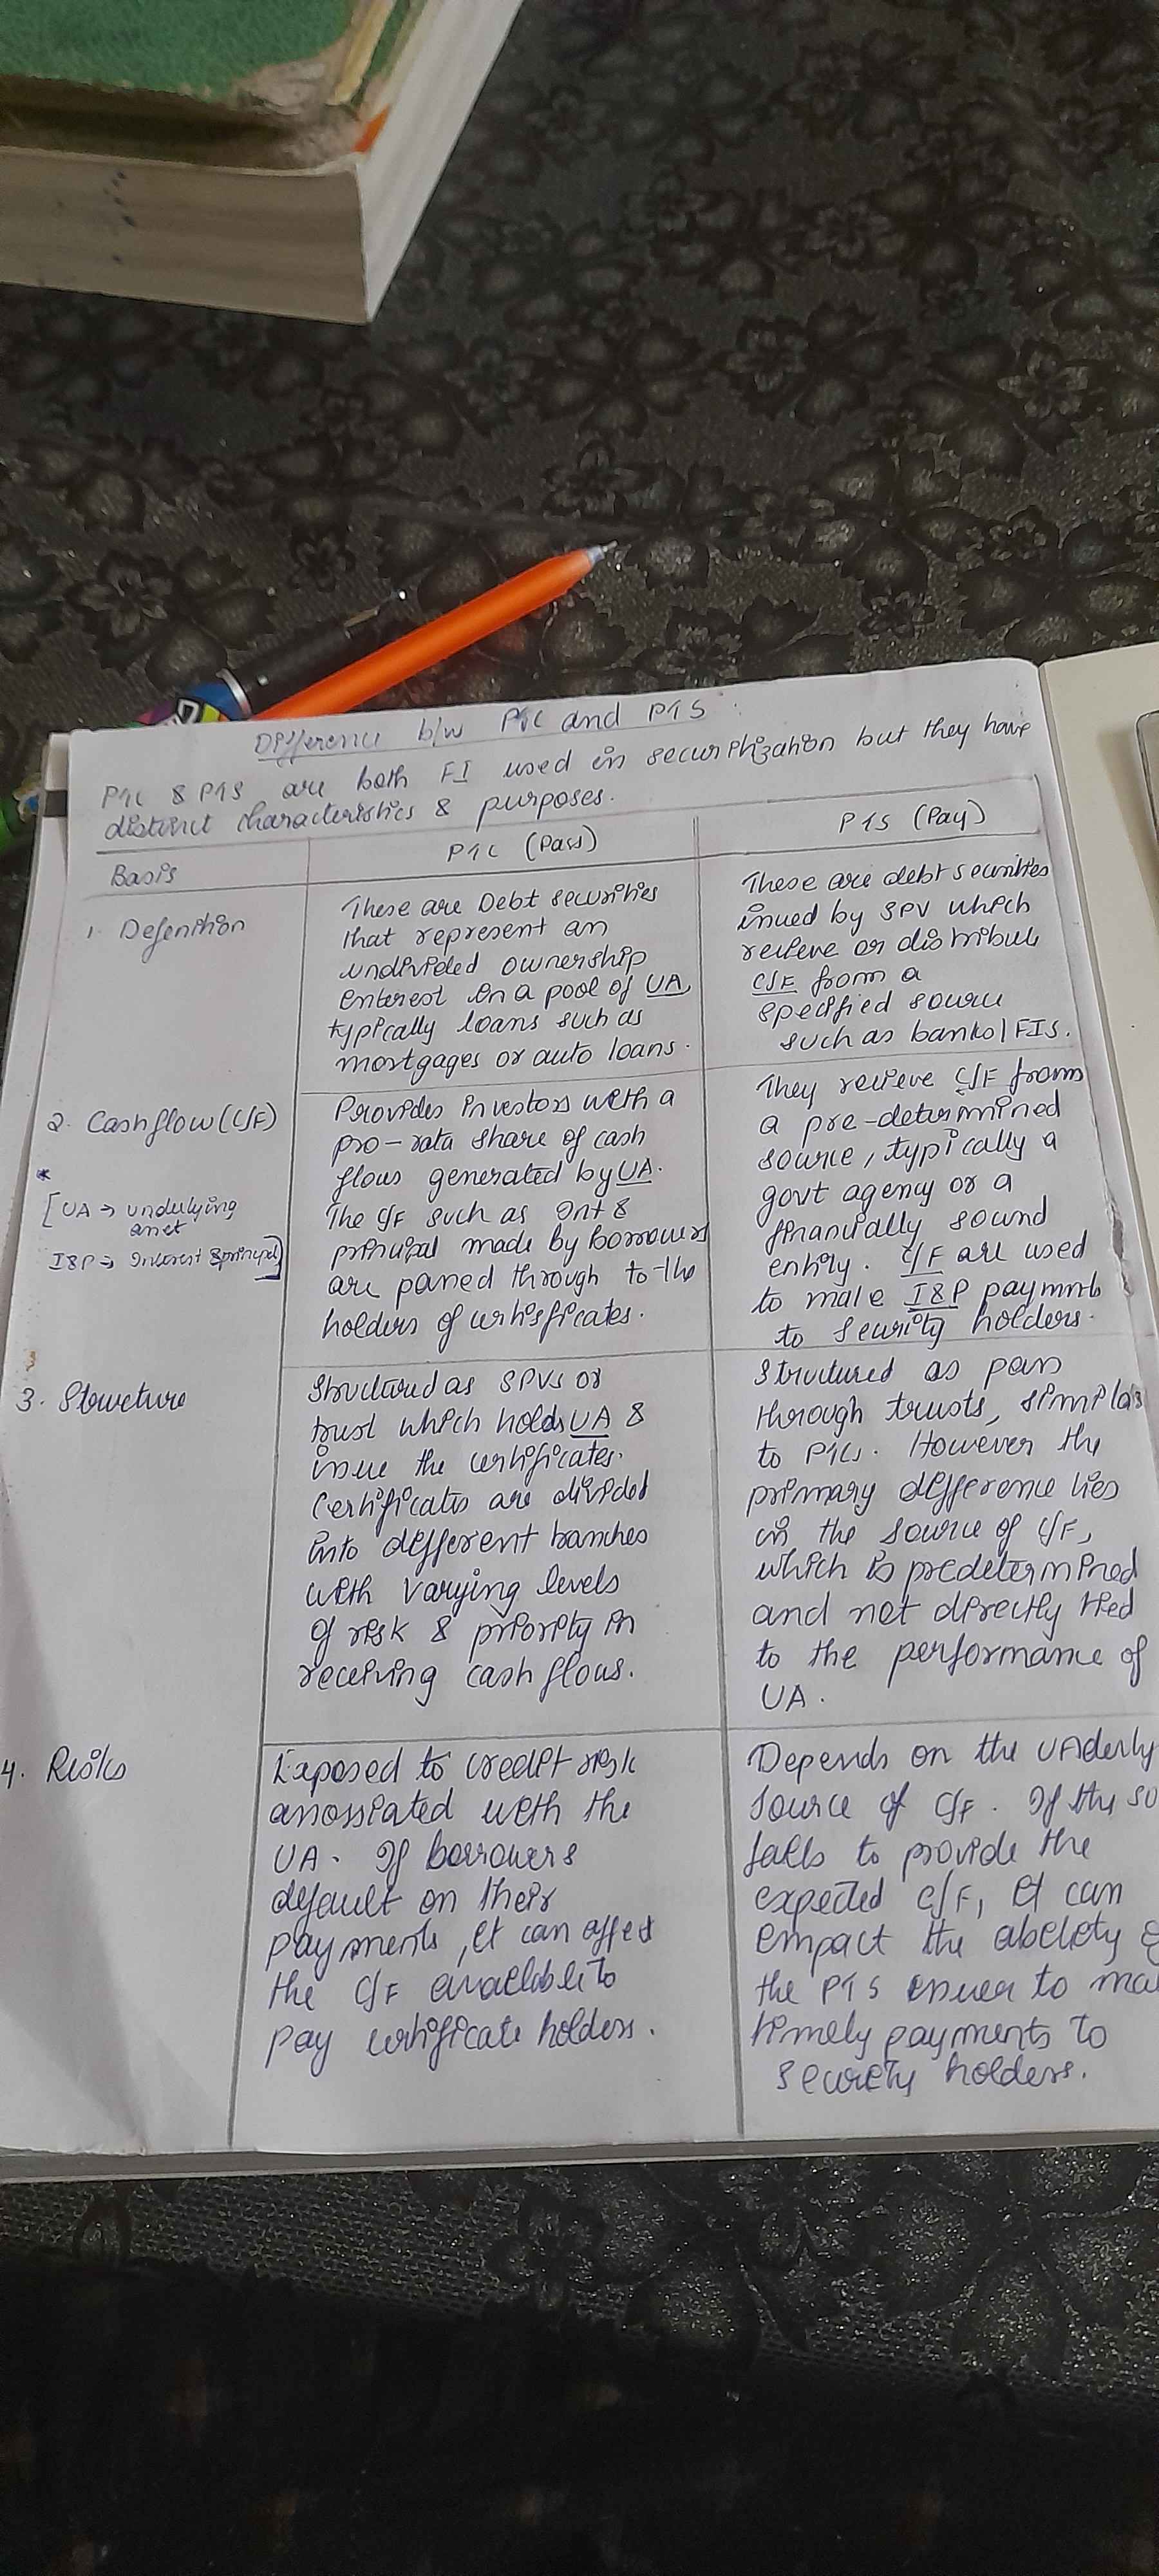 Difference b/w PTC and PTS :
PTC & PTS are both FI used in securitization but they have
distinct characteristics & purposes.
Basis
PTC (Pass)
PTS (Pay)
1. Defenition
These are Debt securities
that represent an
undivided ownership
enterest in a pool of UA,
typically loans such as
mortgages or auto loans.
These are debt securities
issued by SPV which
recieve or distribute
C/F from a
specified source
such as banks/FIs.
2. Cashflow (C/F)
*
[UA → underlying
asset
I&P → Interest & principal]
Provides investors with a
pro-rata share of cash
flows generated by UA.
The C/F such as Int &
principal made by borrowers
are passed through to the
holders of certificates.
They recieve C/F from
a pre-determined
source, typically a
govt agency or a
financially sound
entity. C/F are used
to make I&P payments
to security holders.
3. Structure
Structured as SPVs or
trust which holds UA &
issue the certificates.
Certificates are divided
into different tranches
with varying levels
of risk & priority in
receiving cash flows.
Structured as pass
through trusts, similar
to PTCs. However the
primary difference lies
in the source of C/F,
which is predetermined
and not directly tied
to the performance of
UA.
4. Risks
Exposed to credit risk
assosiated with the
UA. If borrowers
default on their
payments, it can affect
the C/F available to
pay certificate holders.
Depends on the UAderly
source of C/F. If the so
fails to provide the
expected C/F, it can
impact the ability of
the PTS issuer to ma
timely payments to
security holders.